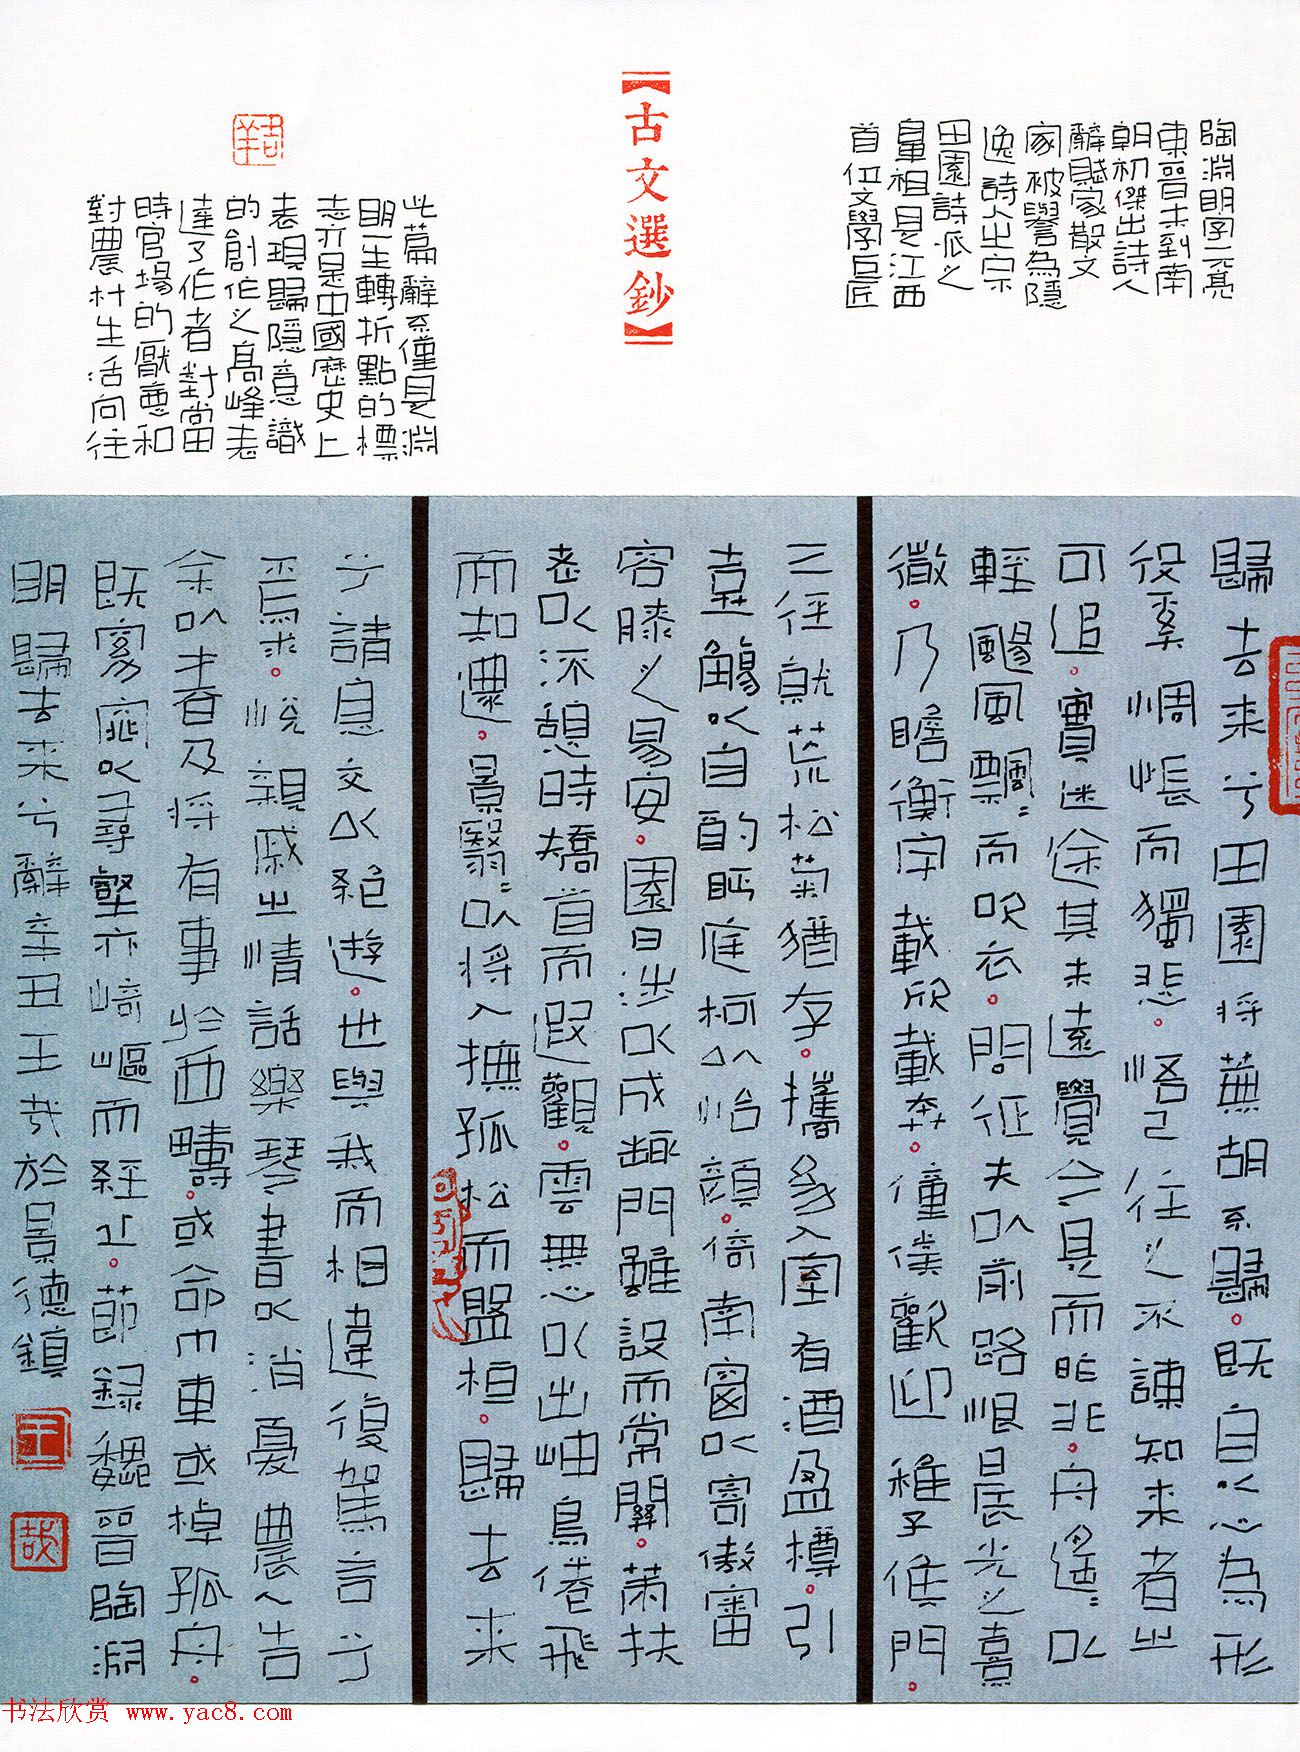 陶淵明字元亮
東晉末到南
朝初傑出詩人
辭賦家散文
家被譽為隱
逸詩人之宗
田園詩派之
鼻祖是江西
首位文學巨匠
【古文選鈔】
吉羊
此篇辭不僅是淵
明一生轉折點的標
志亦是中國歷史上
表現歸隱意識
的創作之高峰表
達了作者對當
時官場的厭惡和
對農村生活向往
歸去來兮田園將蕪胡不歸。既自以心為形
役奚惆悵而獨悲。悟已往之不諫知來者之
可追。實迷途其未遠覺今是而昨非。舟遙〻以
輕颺風飄〻而吹衣。問征夫以前路恨晨光之熹
微。乃瞻衡宇載欣載奔。僮僕歡迎稚子候門。
三徑就荒松菊猶存。攜幼入室有酒盈樽。引
壺觴以自酌眄庭柯以怡顏。倚南窗以寄傲審
容膝之易安。園日涉以成趣門雖設而常關。策扶
老以流憩時矯首而遐觀。雲無心以出岫鳥倦飛
而知還。景翳〻以將入撫孤松而盤桓。歸去來
兮請息交以絕遊。世與我而相違復駕言兮
焉求。悅親戚之情話樂琴書以消憂農人告
余以春及將有事於西疇。或命巾車或棹孤舟。
既窈窕以尋壑亦崎嶇而經丘。節錄魏晉陶淵
明歸去來兮辭辛丑王哉於景德鎮
王
哉
书法欣赏 www.yac8.com